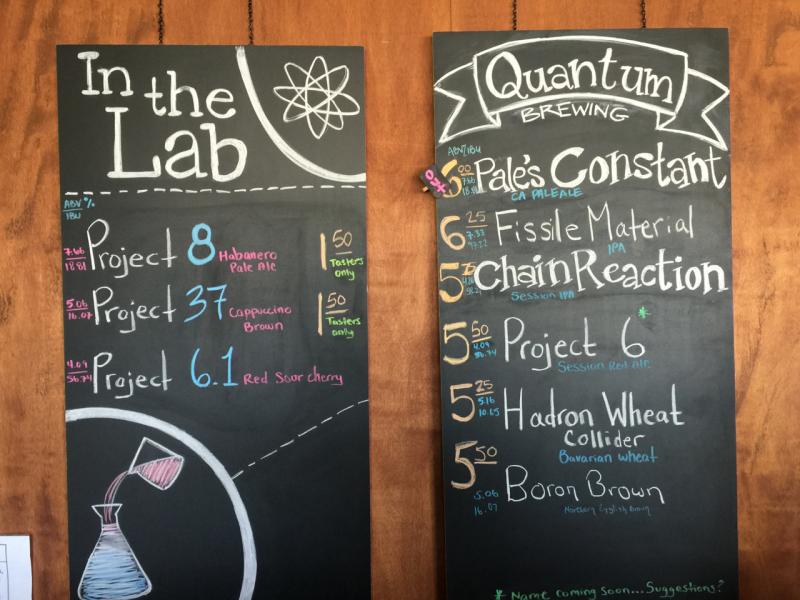 In the
Lab
ABV %
IBU
7.66
18.81
Project 8 Habanero
Pale Ale
1 50
Tasters
only
5.06
16.07
Project 37 Cappuccino
Brown
1 50
Tasters
only
4.09
56.74
Project 6.1 Red Sour cherry
Quantum
BREWING
ABV/IBU
Pale's Constant
CA PALE ALE
6 25
7.33
Fissile Material
IPA
5
Chain Reaction
Session IPA
5 50
4.09
56.74
Project 6*
Session Red Ale
5 25
5.16
10.65
Hadron Wheat
Collider
Bavarian wheat
5 50
5.06
16.07
Boron Brown
Northern English Brown
* Name coming soon... Suggestions?